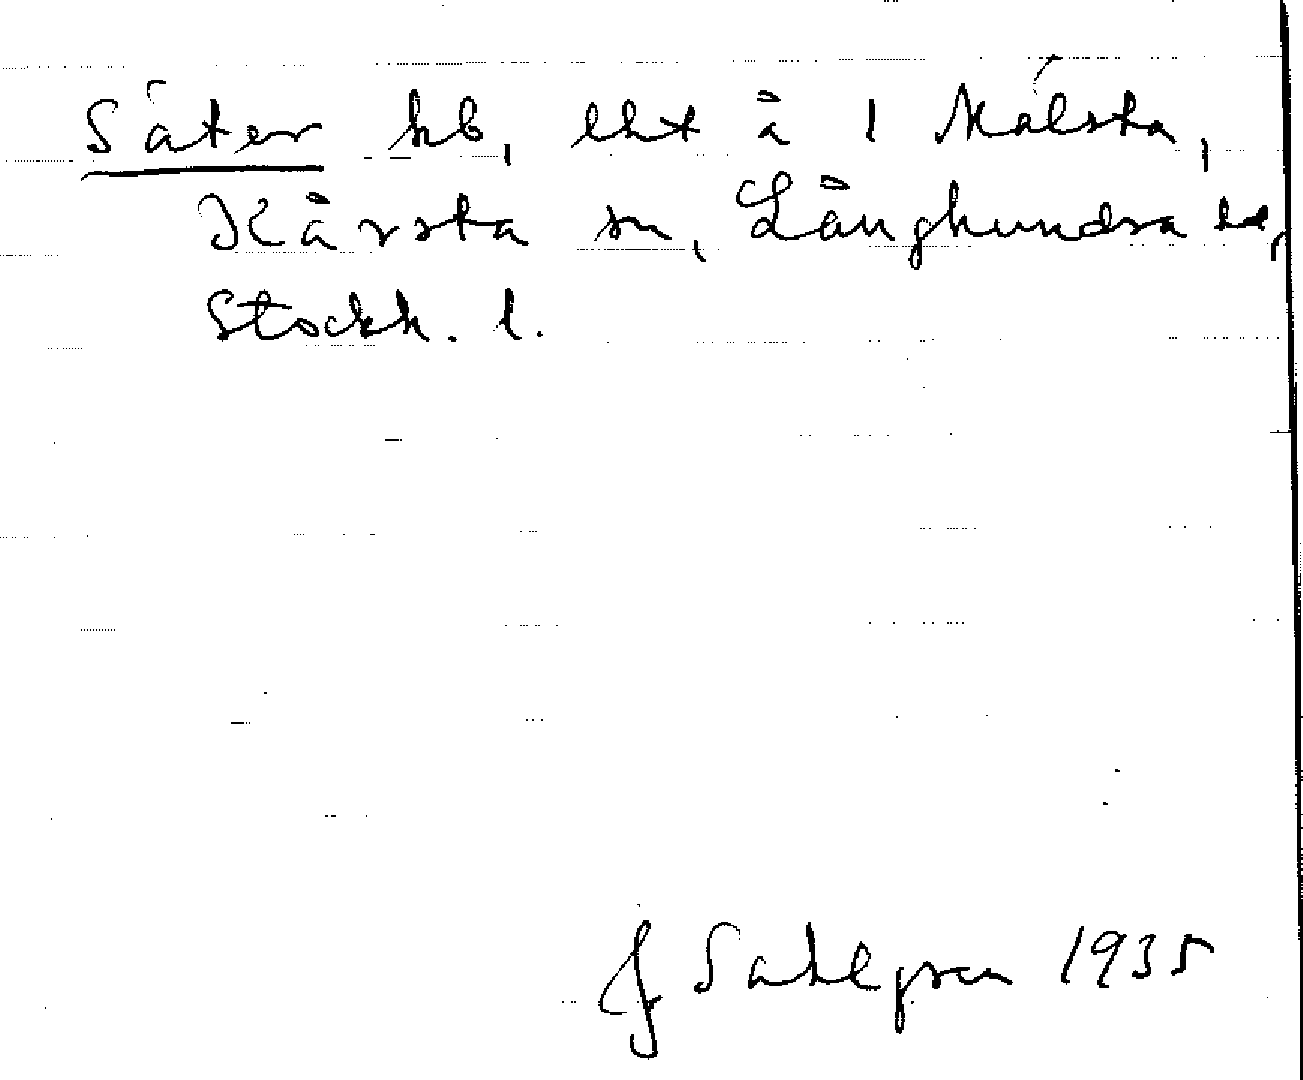 Säter hb, lht å 1 Målsta,
Kårsta sn, Långhundra hd,
Stockh. l.
J Sahlgren 1935